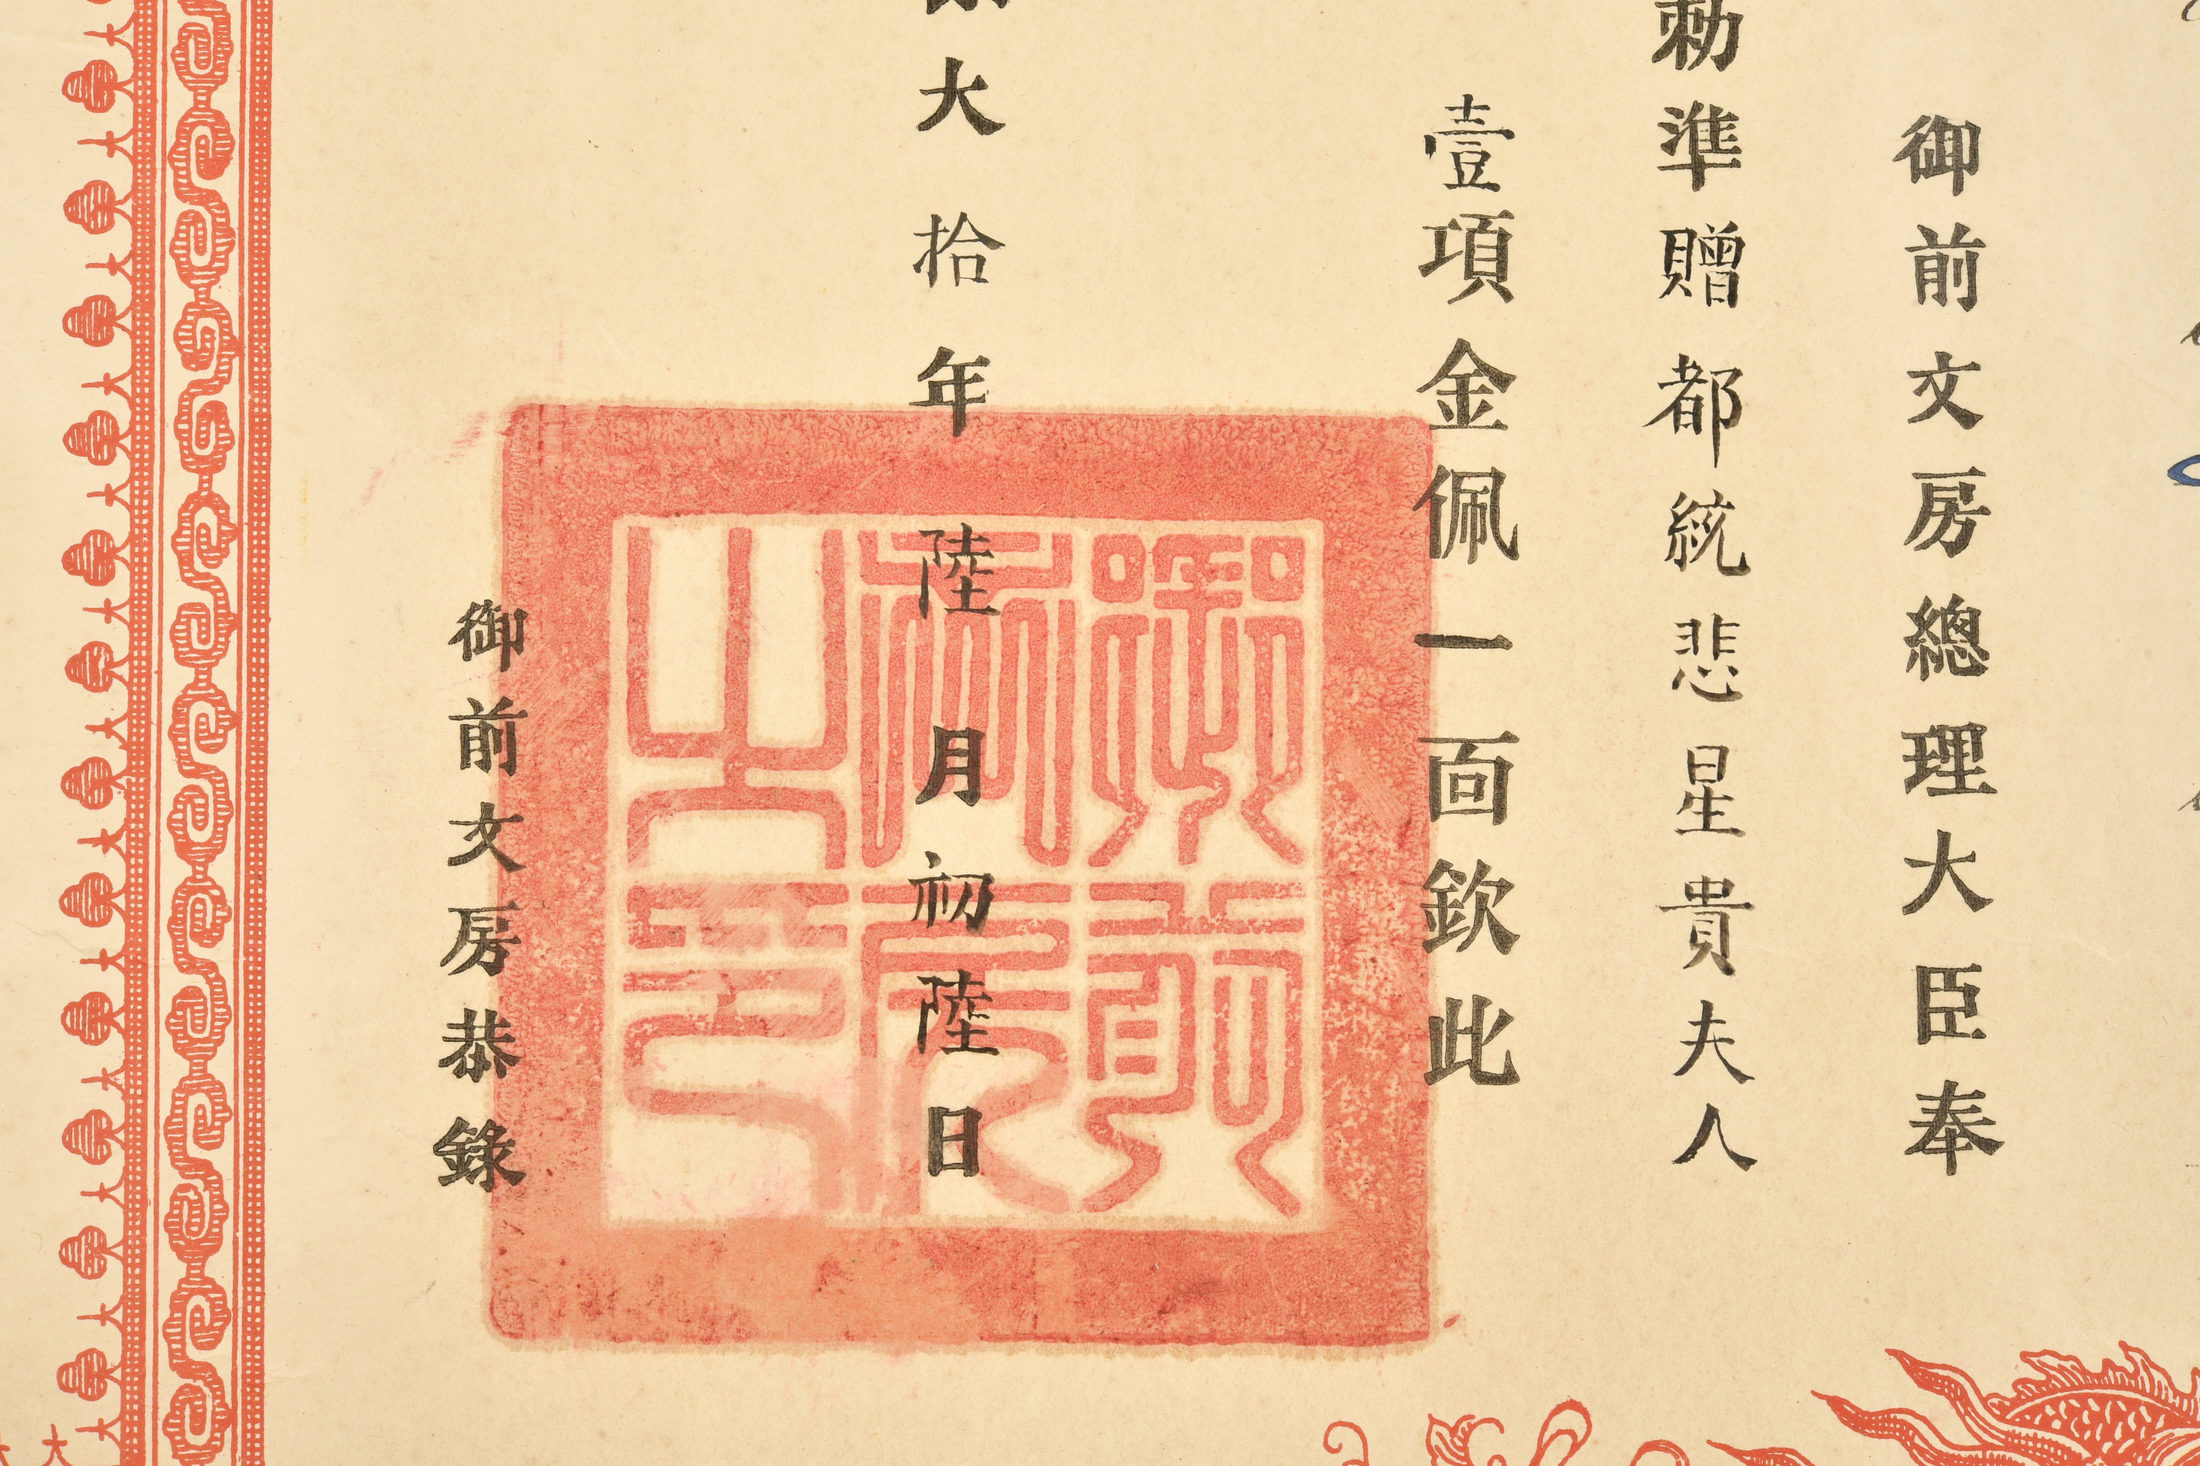 御前文房總理大臣奉
勅準贈都統悲星貴夫人
壹項金佩一面欽此
大拾年陸月初陸日
御前文房恭錄
御前文房之印